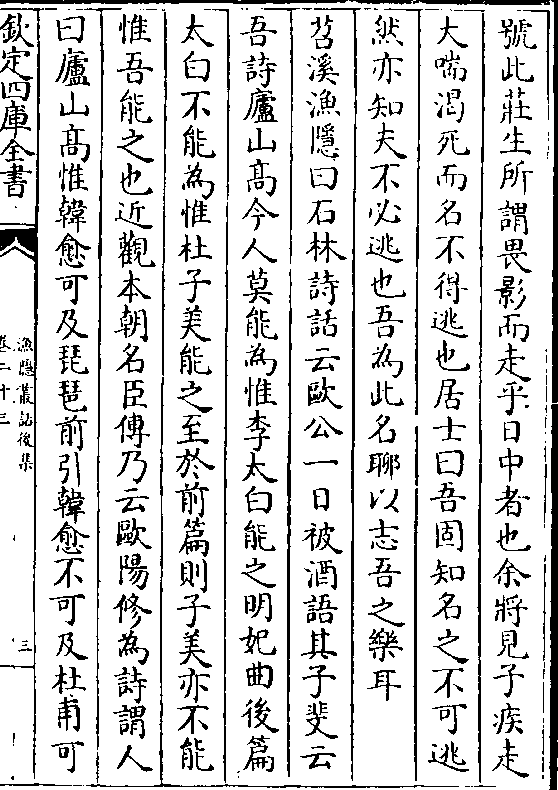 號此莊生所謂畏影而走乎日中者也余將見子疾走
大喘渴死而名不得逃也居士曰吾固知名之不可逃
然亦知夫不必逃也吾為此名聊以志吾之樂耳
苕溪漁隱曰石林詩話云歐公一日被酒語其子斐云
吾詩廬山髙今人莫能為惟李太白能之明妃曲後篇
太白不能為惟杜子美能之至於前篇則子美亦不能
惟吾能之也近觀本朝名臣傳乃云歐陽修為詩謂人
曰廬山髙惟韓愈可及琵琶前引韓愈不可及杜甫可
欽定四庫全書
漁隱叢話後集
卷二十三
三